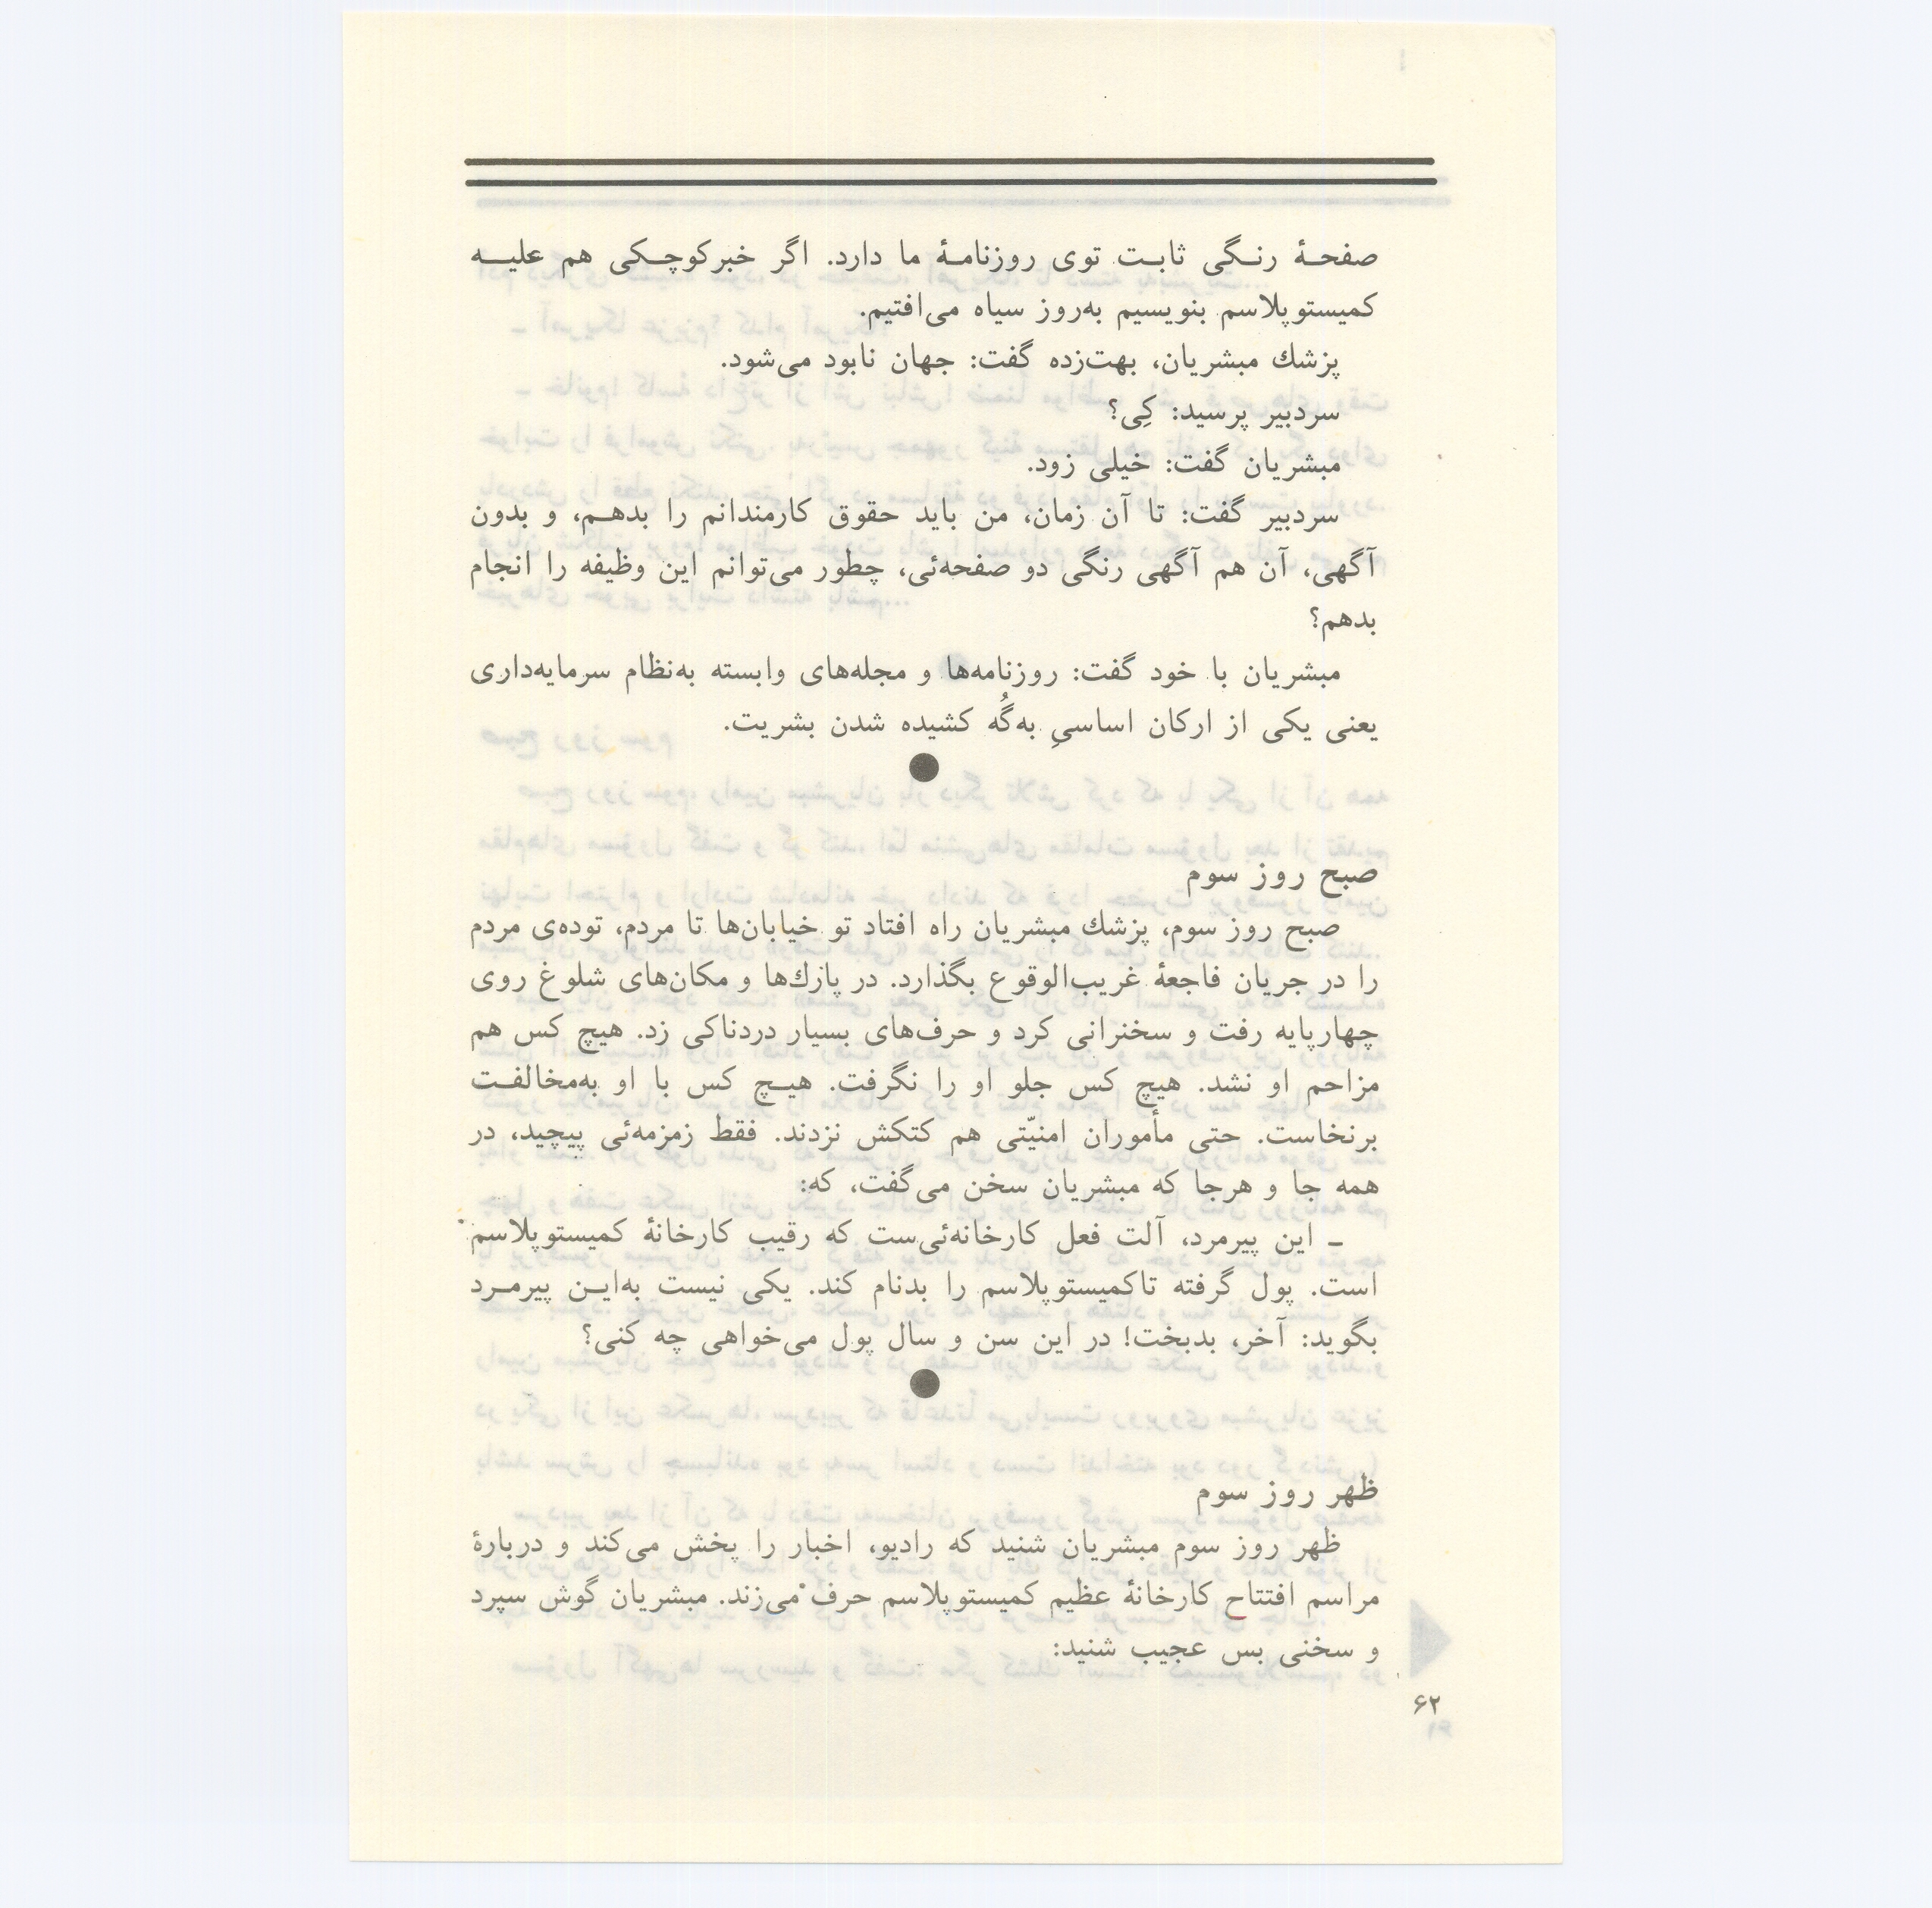 صفحهٔ رنگی ثابت توی روزنامهٔ ما دارد. اگر خبرکوچکی هم علیه
کمیستوپلاسم بنویسیم به‌روز سیاه می‌افتیم.
پزشك مبشریان، بهت‌زده گفت: جهان نابود می‌شود.
سردبیر پرسید: کِی؟
مبشریان گفت: خیلی زود.
سردبیر گفت: تا آن زمان، من باید حقوق کارمندانم را بدهم، و بدون
آگهی، آن هم آگهی رنگی دو صفحه‌ئی، چطور می‌توانم این وظیفه را انجام
بدهم؟
مبشریان با خود گفت: روزنامه‌ها و مجله‌های وابسته به‌نظام سرمایه‌داری
یعنی یکی از ارکان اساسیِ به‌گُه کشیده شدن بشریت.
صبح روز سوم
صبح روز سوم، پزشك مبشریان راه افتاد تو خیابان‌ها تا مردم، توده‌ی مردم
را در جریان فاجعهٔ غریب‌الوقوع بگذارد. در پارك‌ها و مکان‌های شلوغ روی
چهارپایه رفت و سخنرانی کرد و حرف‌های بسیار دردناکی زد. هیچ کس هم
مزاحم او نشد. هیچ کس جلو او را نگرفت. هیچ کس با او به‌مخالفت
برنخاست. حتی مأموران امنیّتی هم کتکش نزدند. فقط زمزمه‌ئی پیچید، در
همه جا و هرجا که مبشریان سخن می‌گفت، که:
ـ این پیرمرد، آلت فعل کارخانه‌ئی‌ست که رقیب کارخانهٔ کمیستوپلاسم
است. پول گرفته تاکمیستوپلاسم را بدنام کند. یکی نیست به‌این پیرمرد
بگوید: آخر، بدبخت! در این سن و سال پول می‌خواهی چه کنی؟
ظهر روز سوم
ظهر روز سوم مبشریان شنید که رادیو، اخبار را پخش می‌کند و دربارهٔ
مراسم افتتاح کارخانهٔ عظیم کمیستوپلاسم حرف می‌زند. مبشریان گوش سپرد
و سخنی بس عجیب شنید:
۶۲